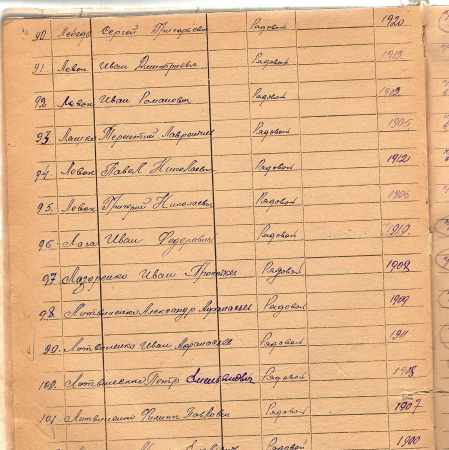 90. Лебедь Сергей Григорьев Рядовой 1920
91. Левон Иван Дмитриевич Рядовой 1913
92 Левон Иван Романович Рядовой 1902
93 Терентий Лаврентиев Рядовой 1905
94. Левон Павел Николаевич Рядовой 1912
95. Левон Григорий Николаевич Рядовой 1906
96. Лога Иван Федорович Рядовой 1919.
97. Лазоренко Иван Рядовой 1909
98. Литвиненко Александр Афанасьев Рядовой 1909
99. Литвиненко Иван Афанасьев Рядовой 1911
100. Литвиненко Петр Рядовой
101 Литвиненко Филипп Павлович Рядовой 1907
Рядовой 1900